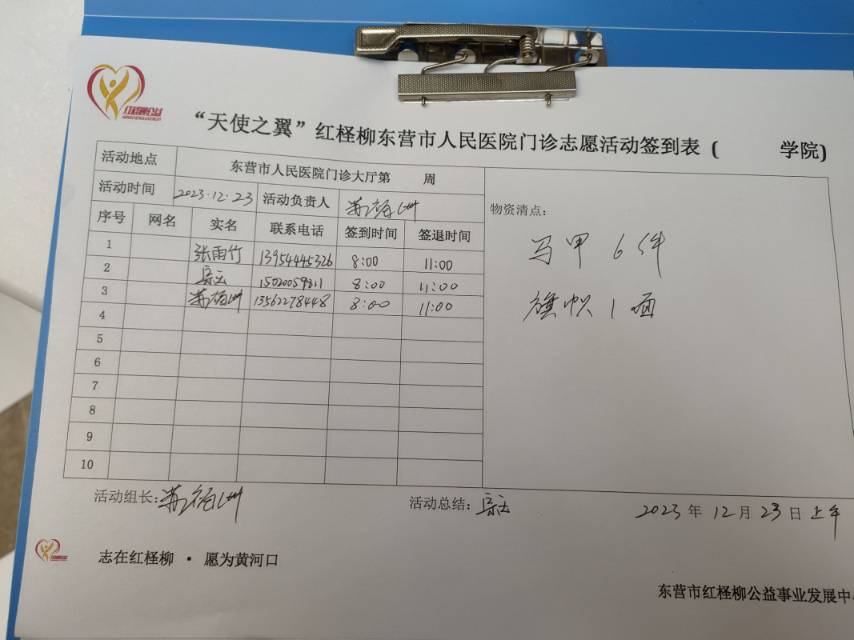 红柽柳公益
“天使之翼”红柽柳东营市人民医院门诊志愿活动签到表(          学院)
活动地点 东营市人民医院门诊大厅第    周
活动时间 2023.12.23 活动负责人
物资清点：
序号 网名 实名 联系电话 签到时间 签退时间
马甲 6件
1 张雨竹 13954445326 8:00 11:00
2 8:00 11:00
旗帜 1面
3 13562278448 8:00 11:00
4
5
6
7
8
9
10
活动组长:
活动总结:
2023年12月23日上午
志在红柽柳 · 愿为黄河口
东营市红柽柳公益事业发展中